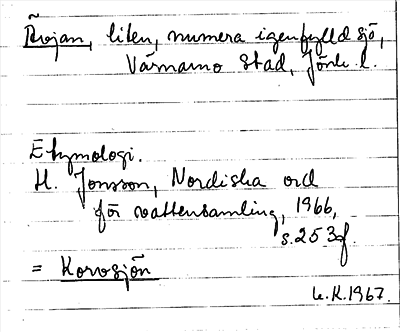 Projan, liten, numera igenfylld sjö,
Värnamo stad, Jönk. l.
Etymologi.
H. Jonsson, Nordiska ord
för vattensamling, 1966,
s. 253 f.
= Korvosjön
K. 1967.